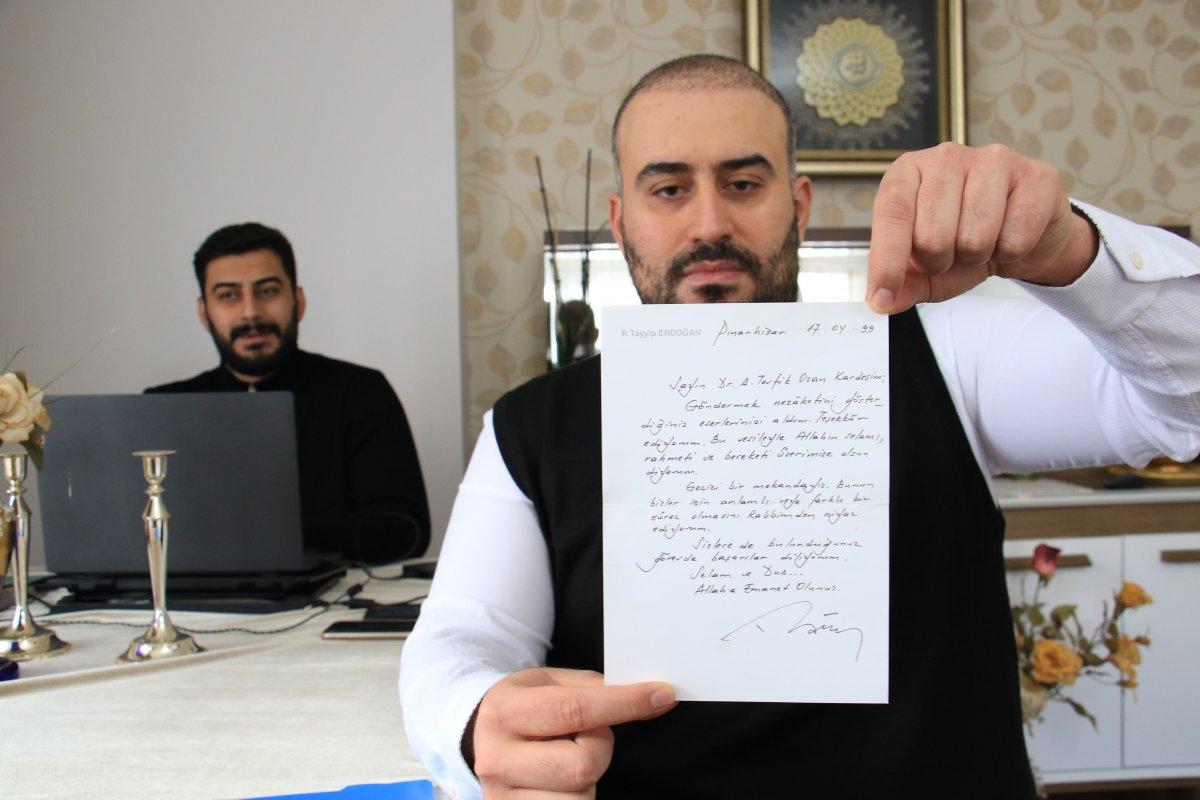 R.Tayyip ERDOĞAN Pınarhisar 17 04 1999
Sayın Dr. A. Tevfik Ozan Kardeşim;
Göndermek nezâketini göster-
diğiniz eserlerinizi aldım. Teşekkür
ediyorum. Bu vesileyle Allahın selamı,
rahmeti ve bereketi üzerimize olsun
diyorum.
Geçici bir mekandayız. Bunun
bizler için anlamlı veya farklı bir
süreç olmasını Rabbimden niyaz
ediyorum.
Sizlere de bulunduğunuz
görevde başarılar diliyorum.
Selam ve Dua...
Allaha Emanet Olunuz.